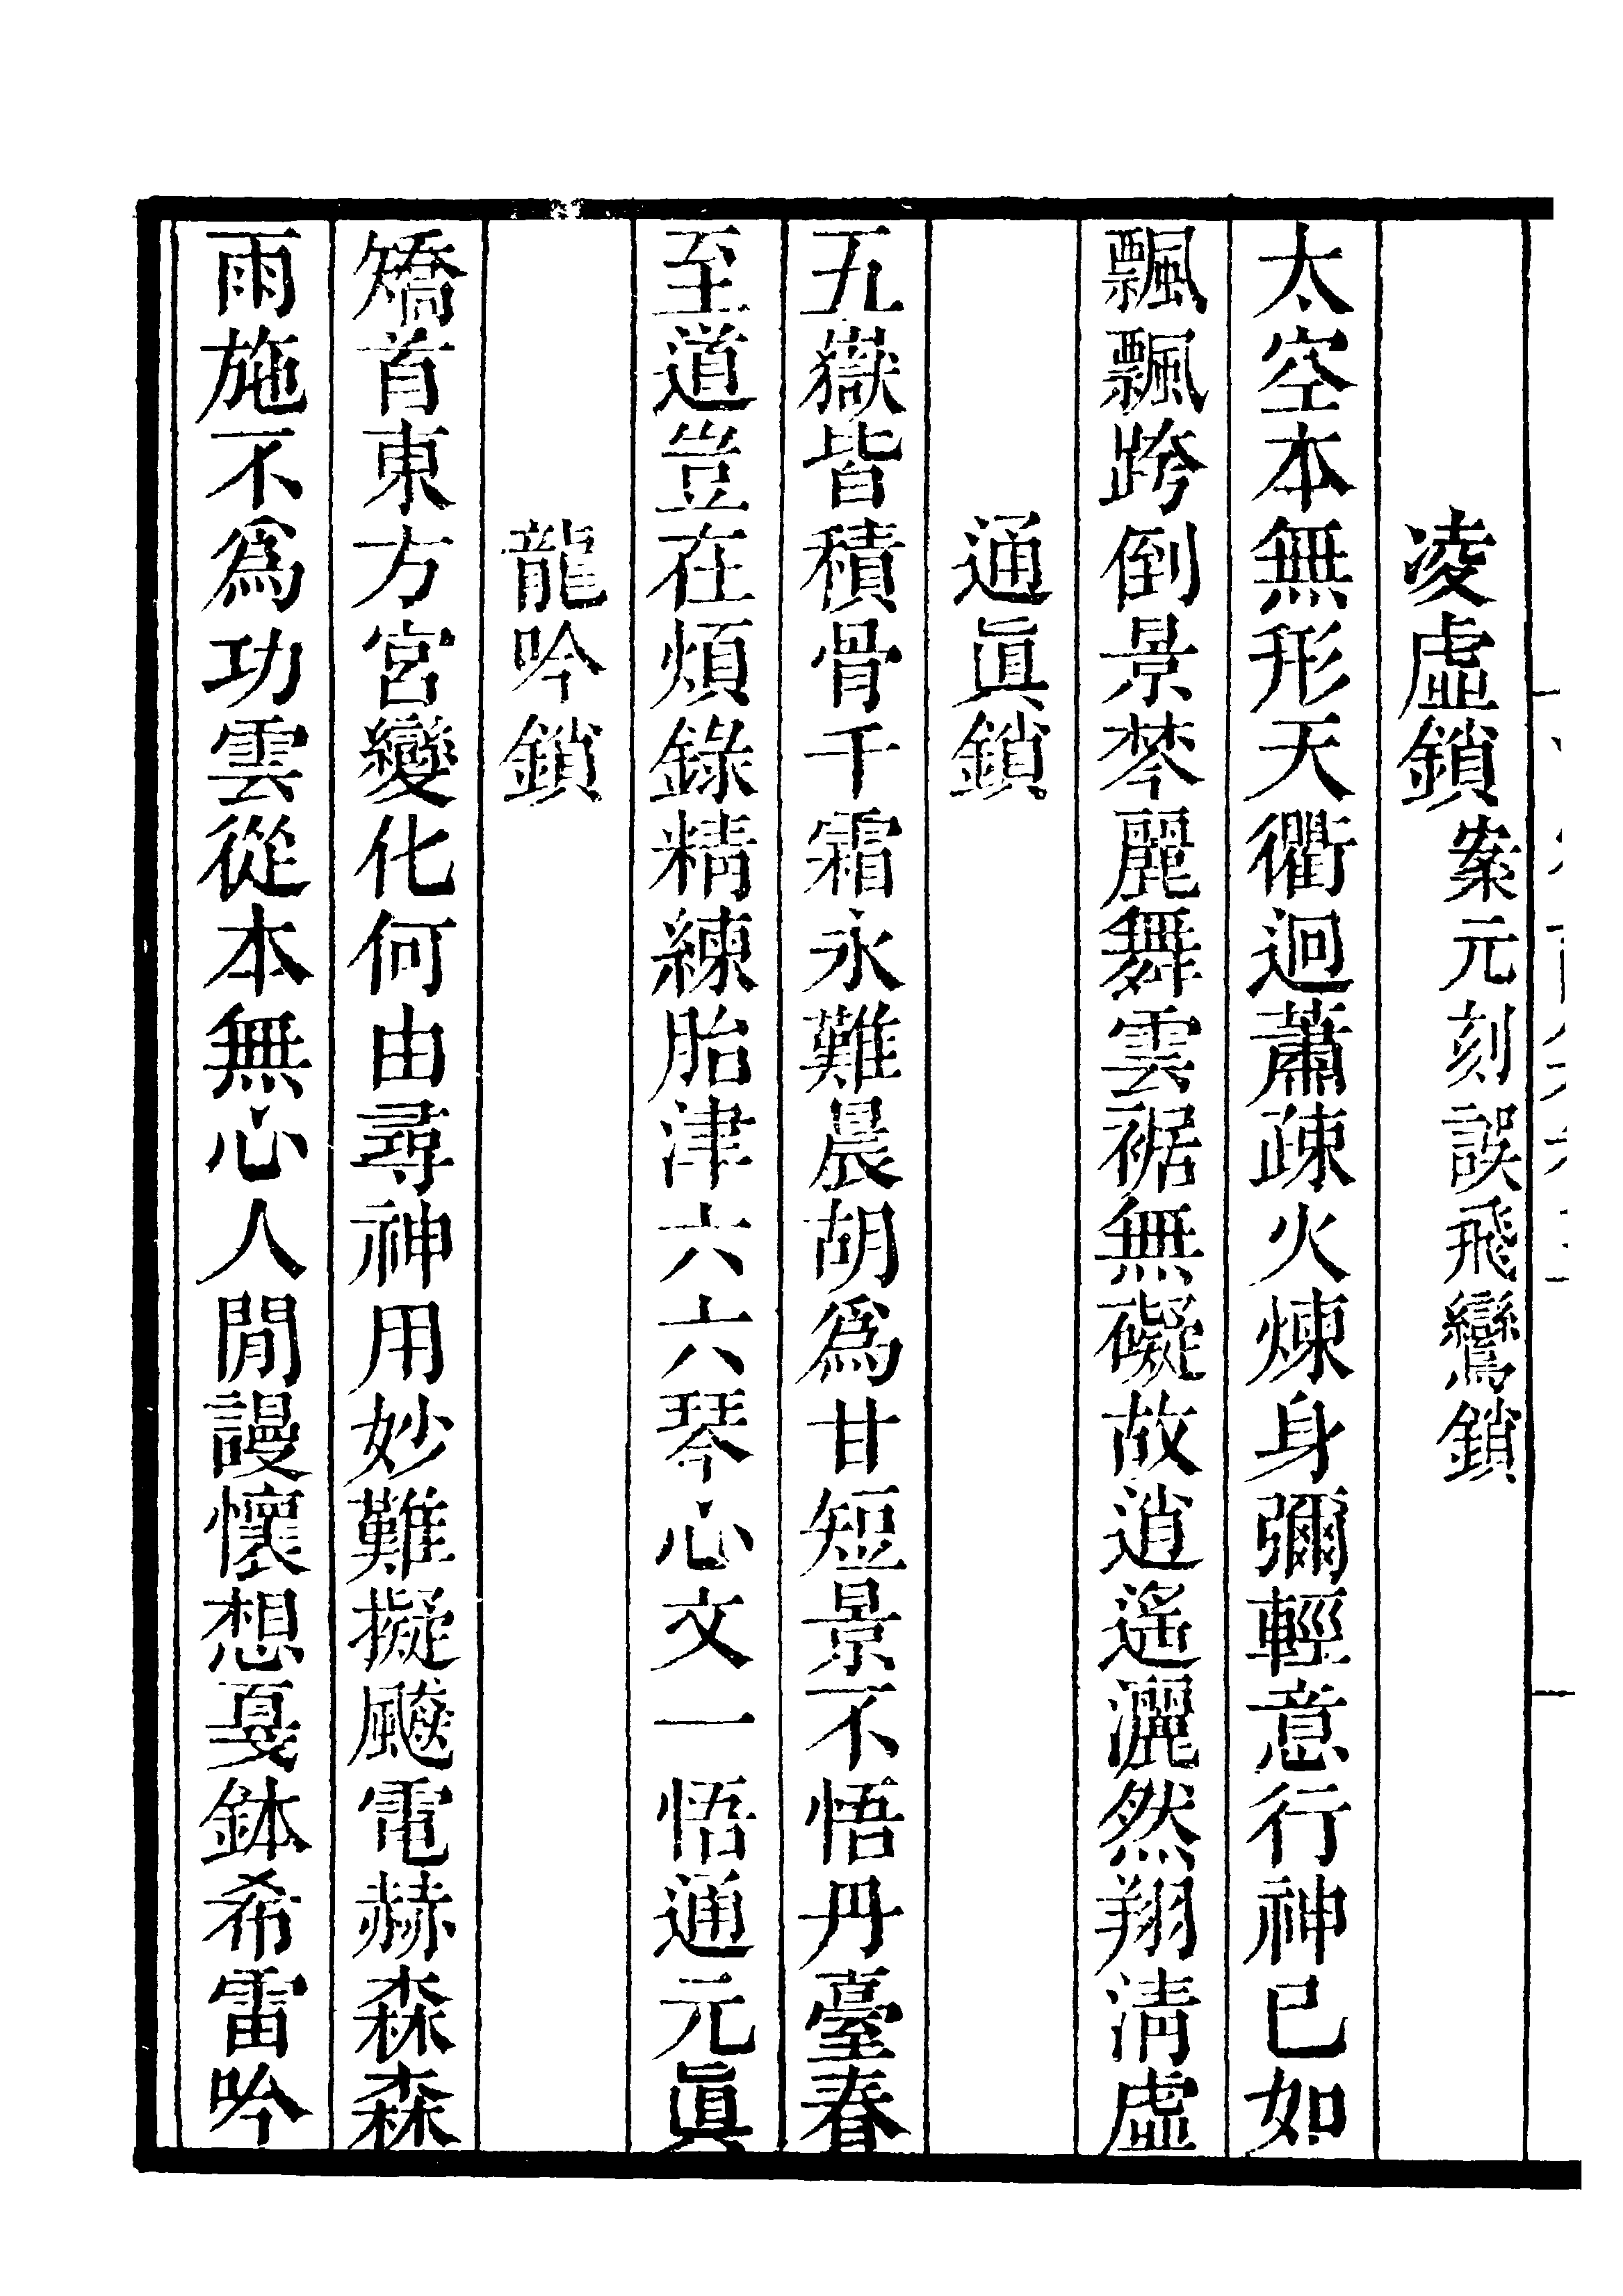 凌虛鎖案元刻誤飛鸞鎖
太空本無形天衢迥蕭疎火煉身彌輕意行神已如
飄飄跨倒景棽麗舞雲裾無礙故逍遙灑然翔淸虛
通眞鎖
五嶽皆積骨千霜永難晨胡爲甘短景不悟丹臺春
至道豈在煩錄精練胎津六六琴心文一悟通元眞
龍吟鎖
矯首東方宮變化何由尋神用妙難擬颷電赫森森
雨施不爲功雲從本無心人閒謾懷想戛鉢希雷吟